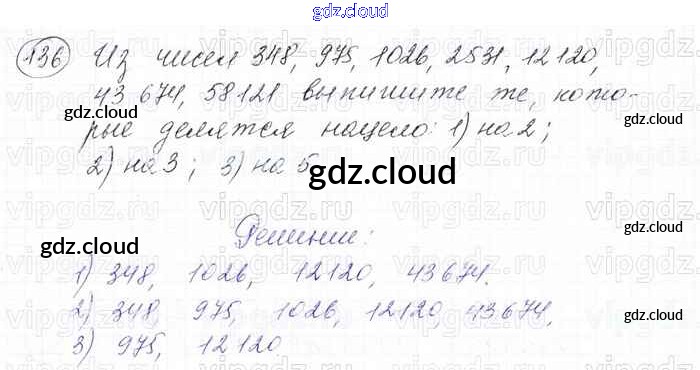 gdz.cloud
136 Из чисел 348, 975, 1026, 2531, 12120,
43 674, 58121 выпишите те, кото-
gdz.cloud
gdz.cloud
рые делятся нацело: 1) на 2;
2) на 3; 3) на 5.
gdz.cloud
Решение:
gdz.cloud
gdz.cloud
1) 348, 1026, 12120, 43674.
2) 348, 975, 1026, 12120, 43674.
gdz.cloud
3) 975, 12120.